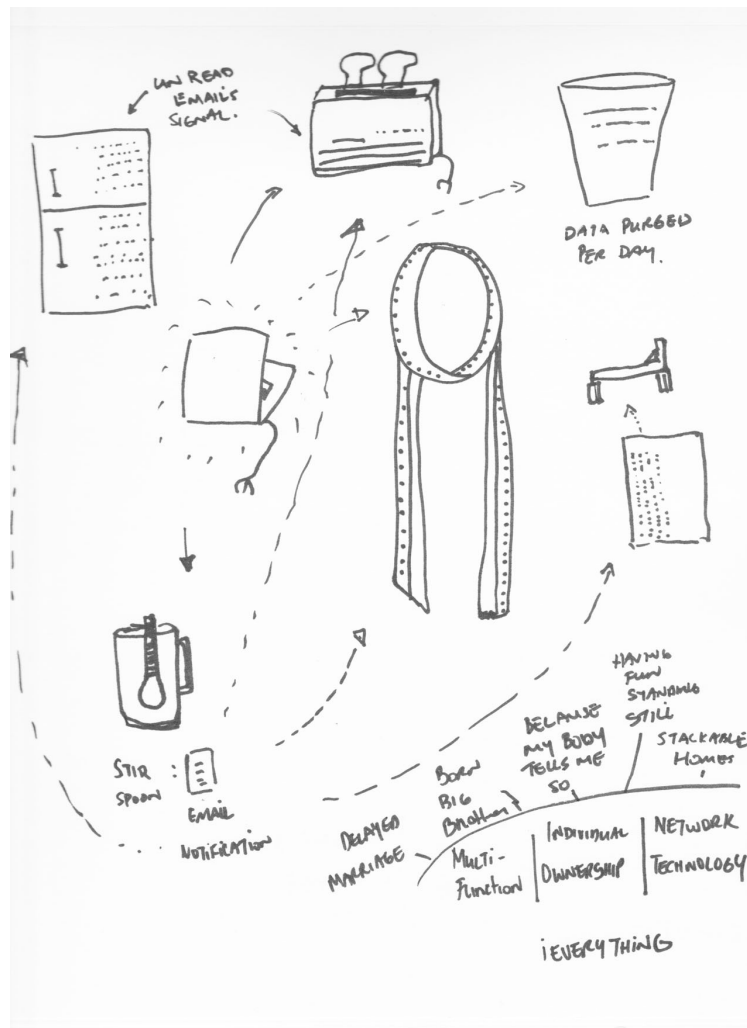 UNREAD
EMAILS
SIGNAL.
DATA PURGED
PER DAY.
STIR
SPOON
:
EMAIL
NOTIFICATION
DELAYED
MARRIAGE
BORN
BIG
BrotHer
BECAUSE
MY BODY
TELLS ME
SO
HAVING
FUN
STANDING
STILL
STACKABLE
HOMES
MULTI-
Function
INDIVIDUAL
OWNERSHIP
NETWORK
TECHNOLOGY
iEVERYTHING